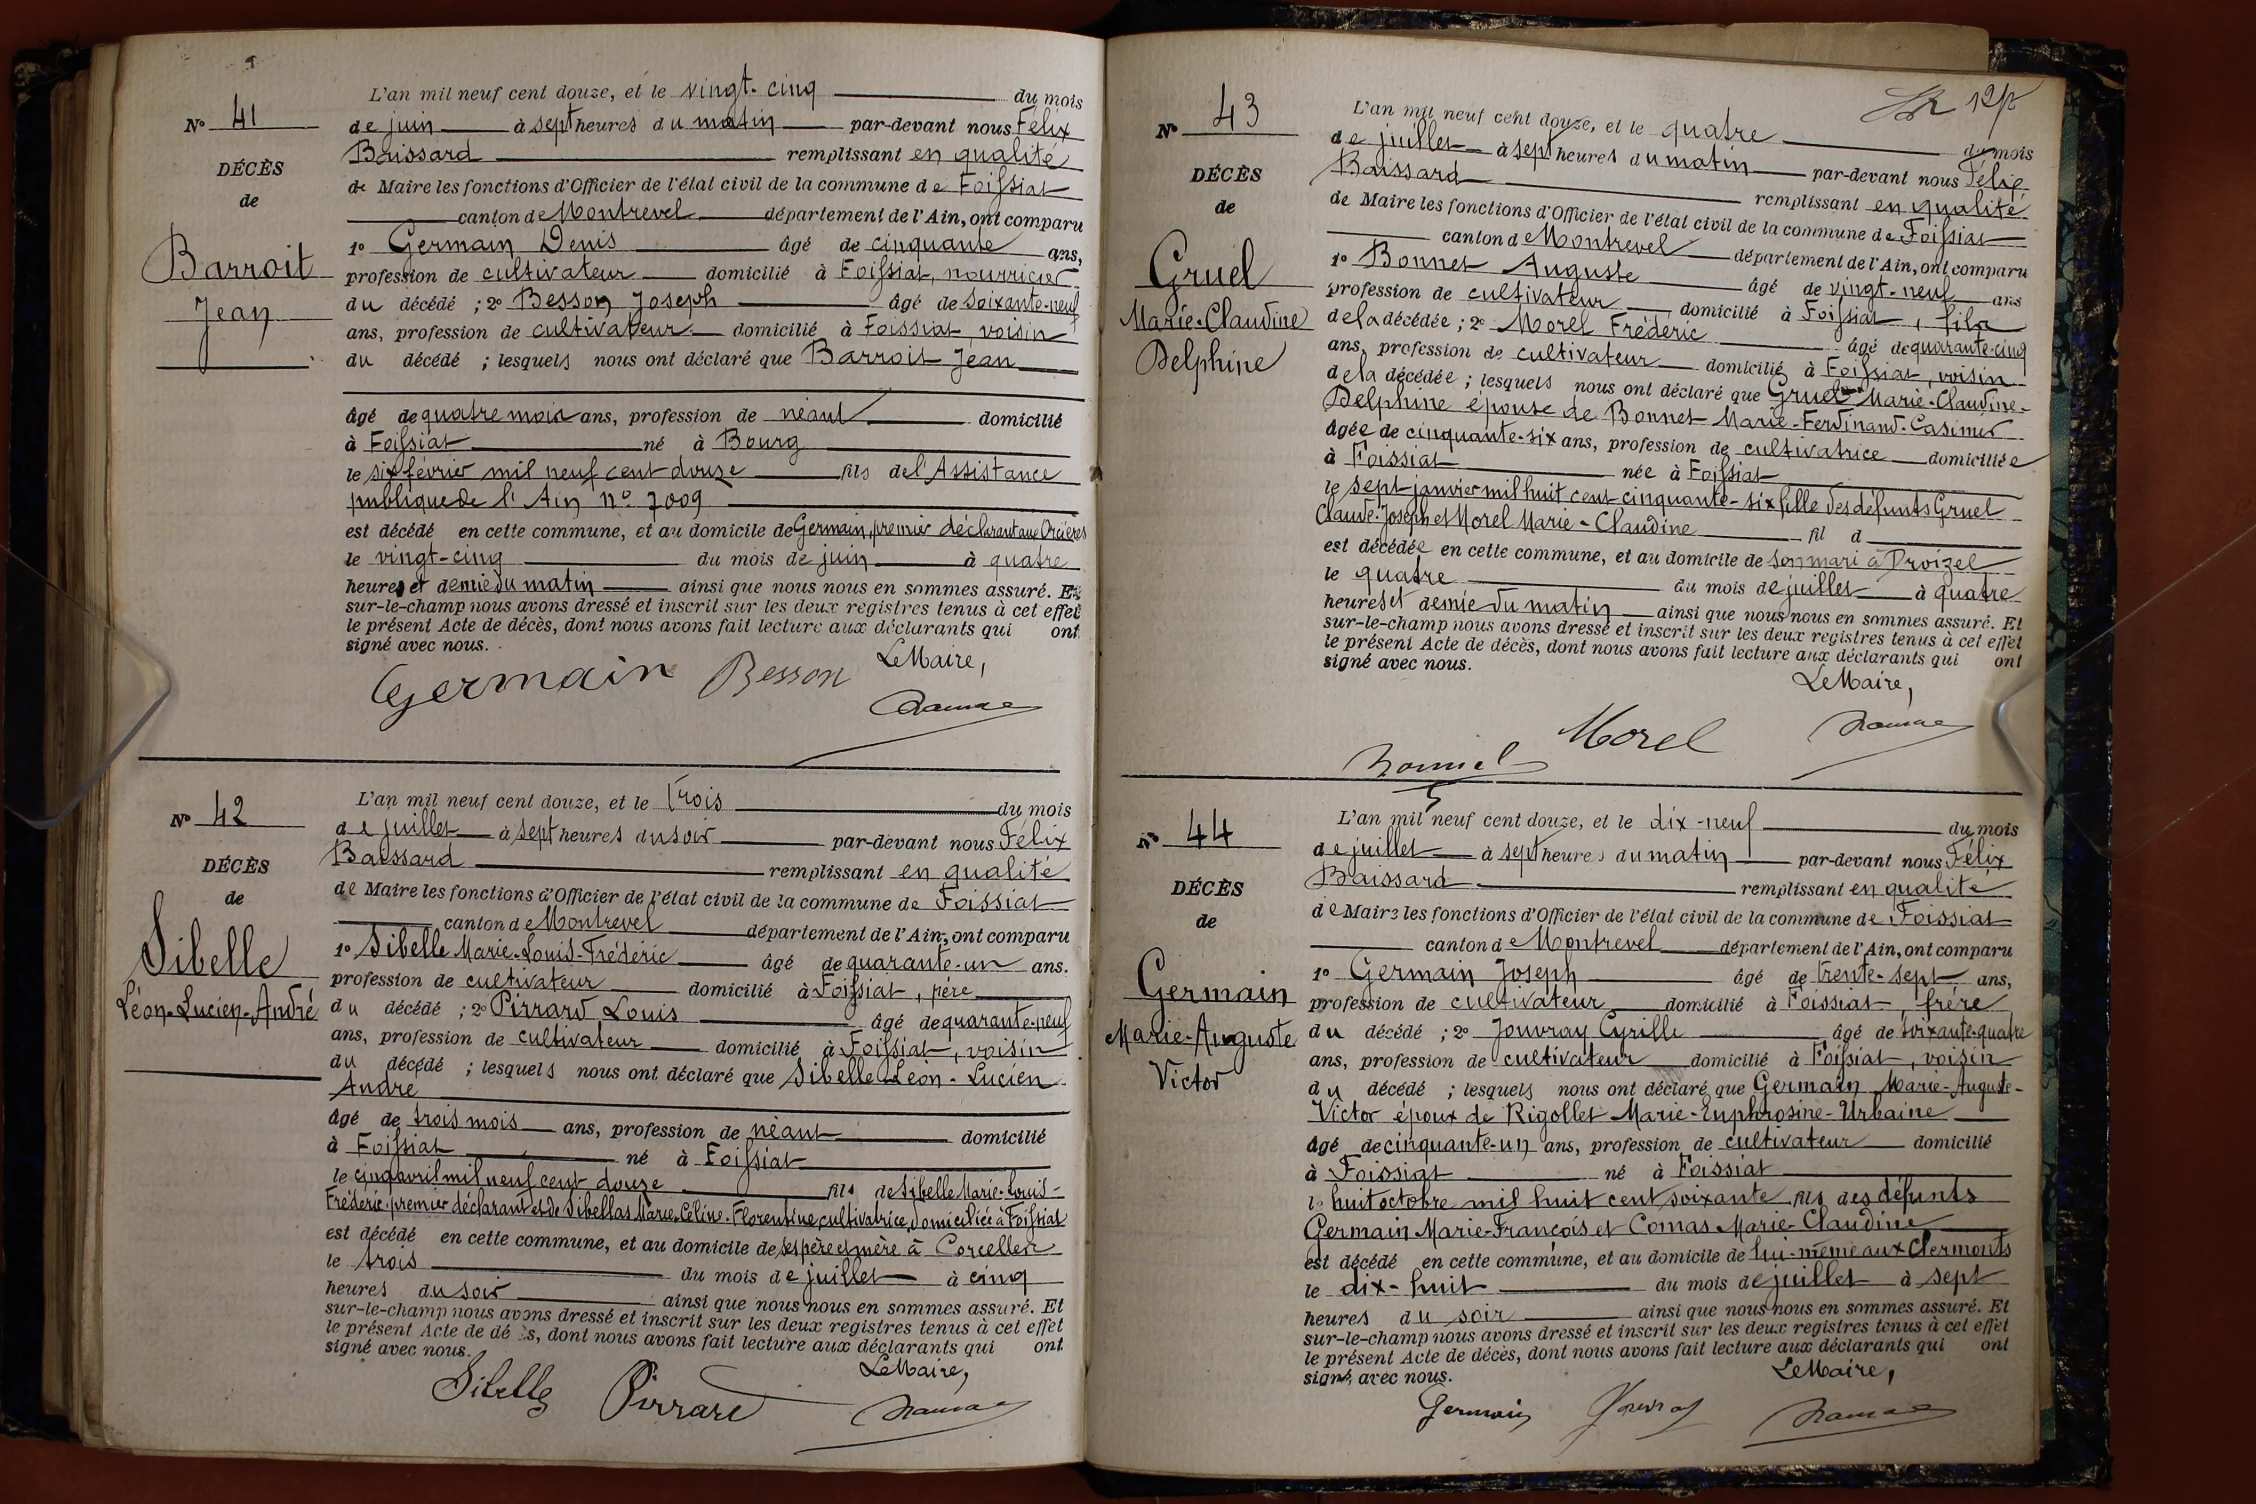 N° 41
DÉCÈS
de
Barroit
Jean
L'an mil neuf cent douze, et le vingt-cinq du mois
de juin à sept heures du matin par-devant nous Félix
Baissard remplissant en qualité
de Maire les fonctions d'Officier de l'état civil de la commune de Foissiat
canton de Montrevel département de l'Ain, ont comparu
1° Germain Denis âgé de cinquante ans,
profession de cultivateur domicilié à Foissiat, nourricier
du décédé ; 2° Besson Joseph âgé de soixante-neuf
ans, profession de cultivateur domicilié à Foissiat, voisin
du décédé ; lesquels nous ont déclaré que Barroit Jean
âgé de quatre mois ans, profession de néant domicilié
à Foissiat né à Bourg
le six février mil neuf cent douze fils de l'Assistance
publique de l'Ain n° 7009
est décédé en cette commune, et au domicile de Germain, premier déclarant aux Orcières
le vingt-cinq du mois de juin à quatre
heures et demie du matin ainsi que nous nous en sommes assuré. Et
sur-le-champ nous avons dressé et inscrit sur les deux registres tenus à cet effet
le présent Acte de décès, dont nous avons fait lecture aux déclarants qui ont
signé avec nous.
Le Maire,
Germain Besson
N° 42
DÉCÈS
de
Sibelle
Léon-Lucien-André
L'an mil neuf cent douze, et le trois du mois
de juillet à sept heures du soir par-devant nous Félix
Baissard remplissant en qualité
de Maire les fonctions d'Officier de l'état civil de la commune de Foissiat
canton de Montrevel département de l'Ain, ont comparu
1° Sibelle Marie-Louis-Frédéric âgé de quarante-un ans.
profession de cultivateur domicilié à Foissiat, père
du décédé ; 2° Pirrard Louis âgé de quarante-neuf
ans, profession de cultivateur domicilié à Foissiat, voisin
du décédé ; lesquels nous ont déclaré que Sibelle Léon-Lucien
André
âgé de trois mois ans, profession de néant domicilié
à Foissiat né à Foissiat
le cinq avril mil neuf cent douze fils de Sibelle Marie-Louis-
Frédéric, premier déclarant et de Sibellas Marie-Céline-Florentine, cultivatrice, domiciliée à Foissiat
est décédé en cette commune, et au domicile de ses père et mère à Corcelles
le trois du mois de juillet à cinq
heures du soir ainsi que nous nous en sommes assuré. Et
sur-le-champ nous avons dressé et inscrit sur les deux registres tenus à cet effet
le présent Acte de décès, dont nous avons fait lecture aux déclarants qui ont
signé avec nous.
Le Maire,
Sibelle Pirrard
12/2
N° 43
DÉCÈS
de
Gruel
Marie-Claudine
Delphine
L'an mil neuf cent douze, et le quatre du mois
de juillet à sept heures du matin par-devant nous Félix
Baissard remplissant en qualité
de Maire les fonctions d'Officier de l'état civil de la commune de Foissiat
canton de Montrevel département de l'Ain, ont comparu
1° Bonnet Auguste âgé de vingt-neuf ans
profession de cultivateur domicilié à Foissiat, fils
de la décédée ; 2° Morel Frédéric âgé de quarante-cinq
ans, profession de cultivateur domicilié à Foissiat, voisin
de la décédée ; lesquels nous ont déclaré que Gruel Marie-Claudine-
Delphine épouse de Bonnet Marie-Ferdinand-Casimir
âgée de cinquante-six ans, profession de cultivatrice domiciliée
à Foissiat née à Foissiat
le sept janvier mil huit cent cinquante-six fille des défunts Gruel
Claude-Joseph et Morel Marie-Claudine fil d
est décédée en cette commune, et au domicile de son mari à Droizel
le quatre du mois de juillet à quatre
heures et demie du matin ainsi que nous nous en sommes assuré. Et
sur-le-champ nous avons dressé et inscrit sur les deux registres tenus à cet effet
le présent Acte de décès, dont nous avons fait lecture aux déclarants qui ont
signé avec nous.
Le Maire,
Bonnet Morel
N° 44
DÉCÈS
de
Germain
Marie-Auguste
Victor
L'an mil neuf cent douze, et le dix-neuf du mois
de juillet à sept heures du matin par-devant nous Félix
Baissard remplissant en qualité
de Maire les fonctions d'Officier de l'état civil de la commune de Foissiat
canton de Montrevel département de l'Ain, ont comparu
1° Germain Joseph âgé de trente-sept ans,
profession de cultivateur domicilié à Foissiat, frère
du décédé ; 2° Jouvray Cyrille âgé de soixante-quatre
ans, profession de cultivateur domicilié à Foissiat, voisin
du décédé ; lesquels nous ont déclaré que Germain Marie-Auguste-
Victor époux de Rigollet Marie-Euphrosine-Urbaine
âgé de cinquante-un ans, profession de cultivateur domicilié
à Foissiat né à Foissiat
le huit octobre mil huit cent soixante fils des défunts
Germain Marie-François et Comas Marie-Claudine
est décédé en cette commune, et au domicile de lui-même aux Clermonts
le dix-huit du mois de juillet à sept
heures du soir ainsi que nous nous en sommes assuré. Et
sur-le-champ nous avons dressé et inscrit sur les deux registres tenus à cet effet
le présent Acte de décès, dont nous avons fait lecture aux déclarants qui ont
signé avec nous.
Le Maire,
Germain Jouvray